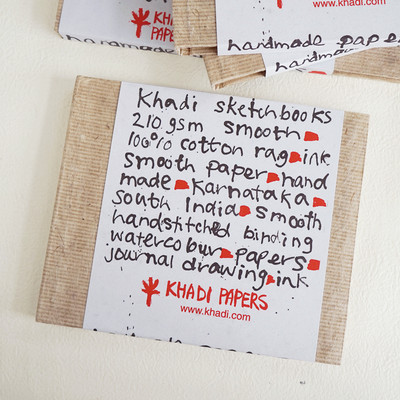 www.khadi.com
KHADI
PAPERS
handmade papers
handmade
handmade paper
Khadi sketchbooks
210 gsm smooth
100% cotton rag ink
smooth paper hand
made Karnataka
South India smooth
handstitched binding
watercolour papers
journal drawing ink
KHADI PAPERS
www.khadi.com